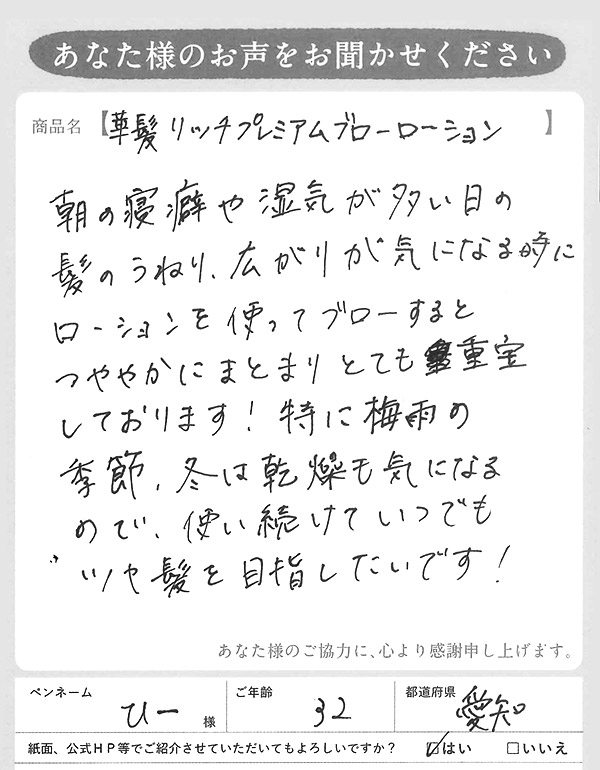 あなた様のお声をお聞かせください
商品名【華髪リッチプレミアムブローローション】
朝の寝癖や湿気が多い日の
髪のうねり、広がりが気になる時に
ローションを使ってブローすると
つややかにまとまりとても重宝
しております！特に梅雨の
季節、冬は乾燥も気になる
ので、使い続けていつでも
ツヤ髪を目指したいです！
あなた様のご協力に、心より感謝申し上げます。
ペンネーム ひー 様 ご年齢 32 都道府県 愛知
紙面、公式HP等でご紹介させていただいてもよろしいですか？ ☑はい □いいえ